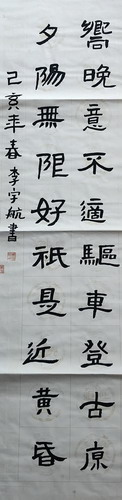 嚮晚意不適驅車登古原
夕陽無限好祇是近黃昏
己亥年春李宇航書